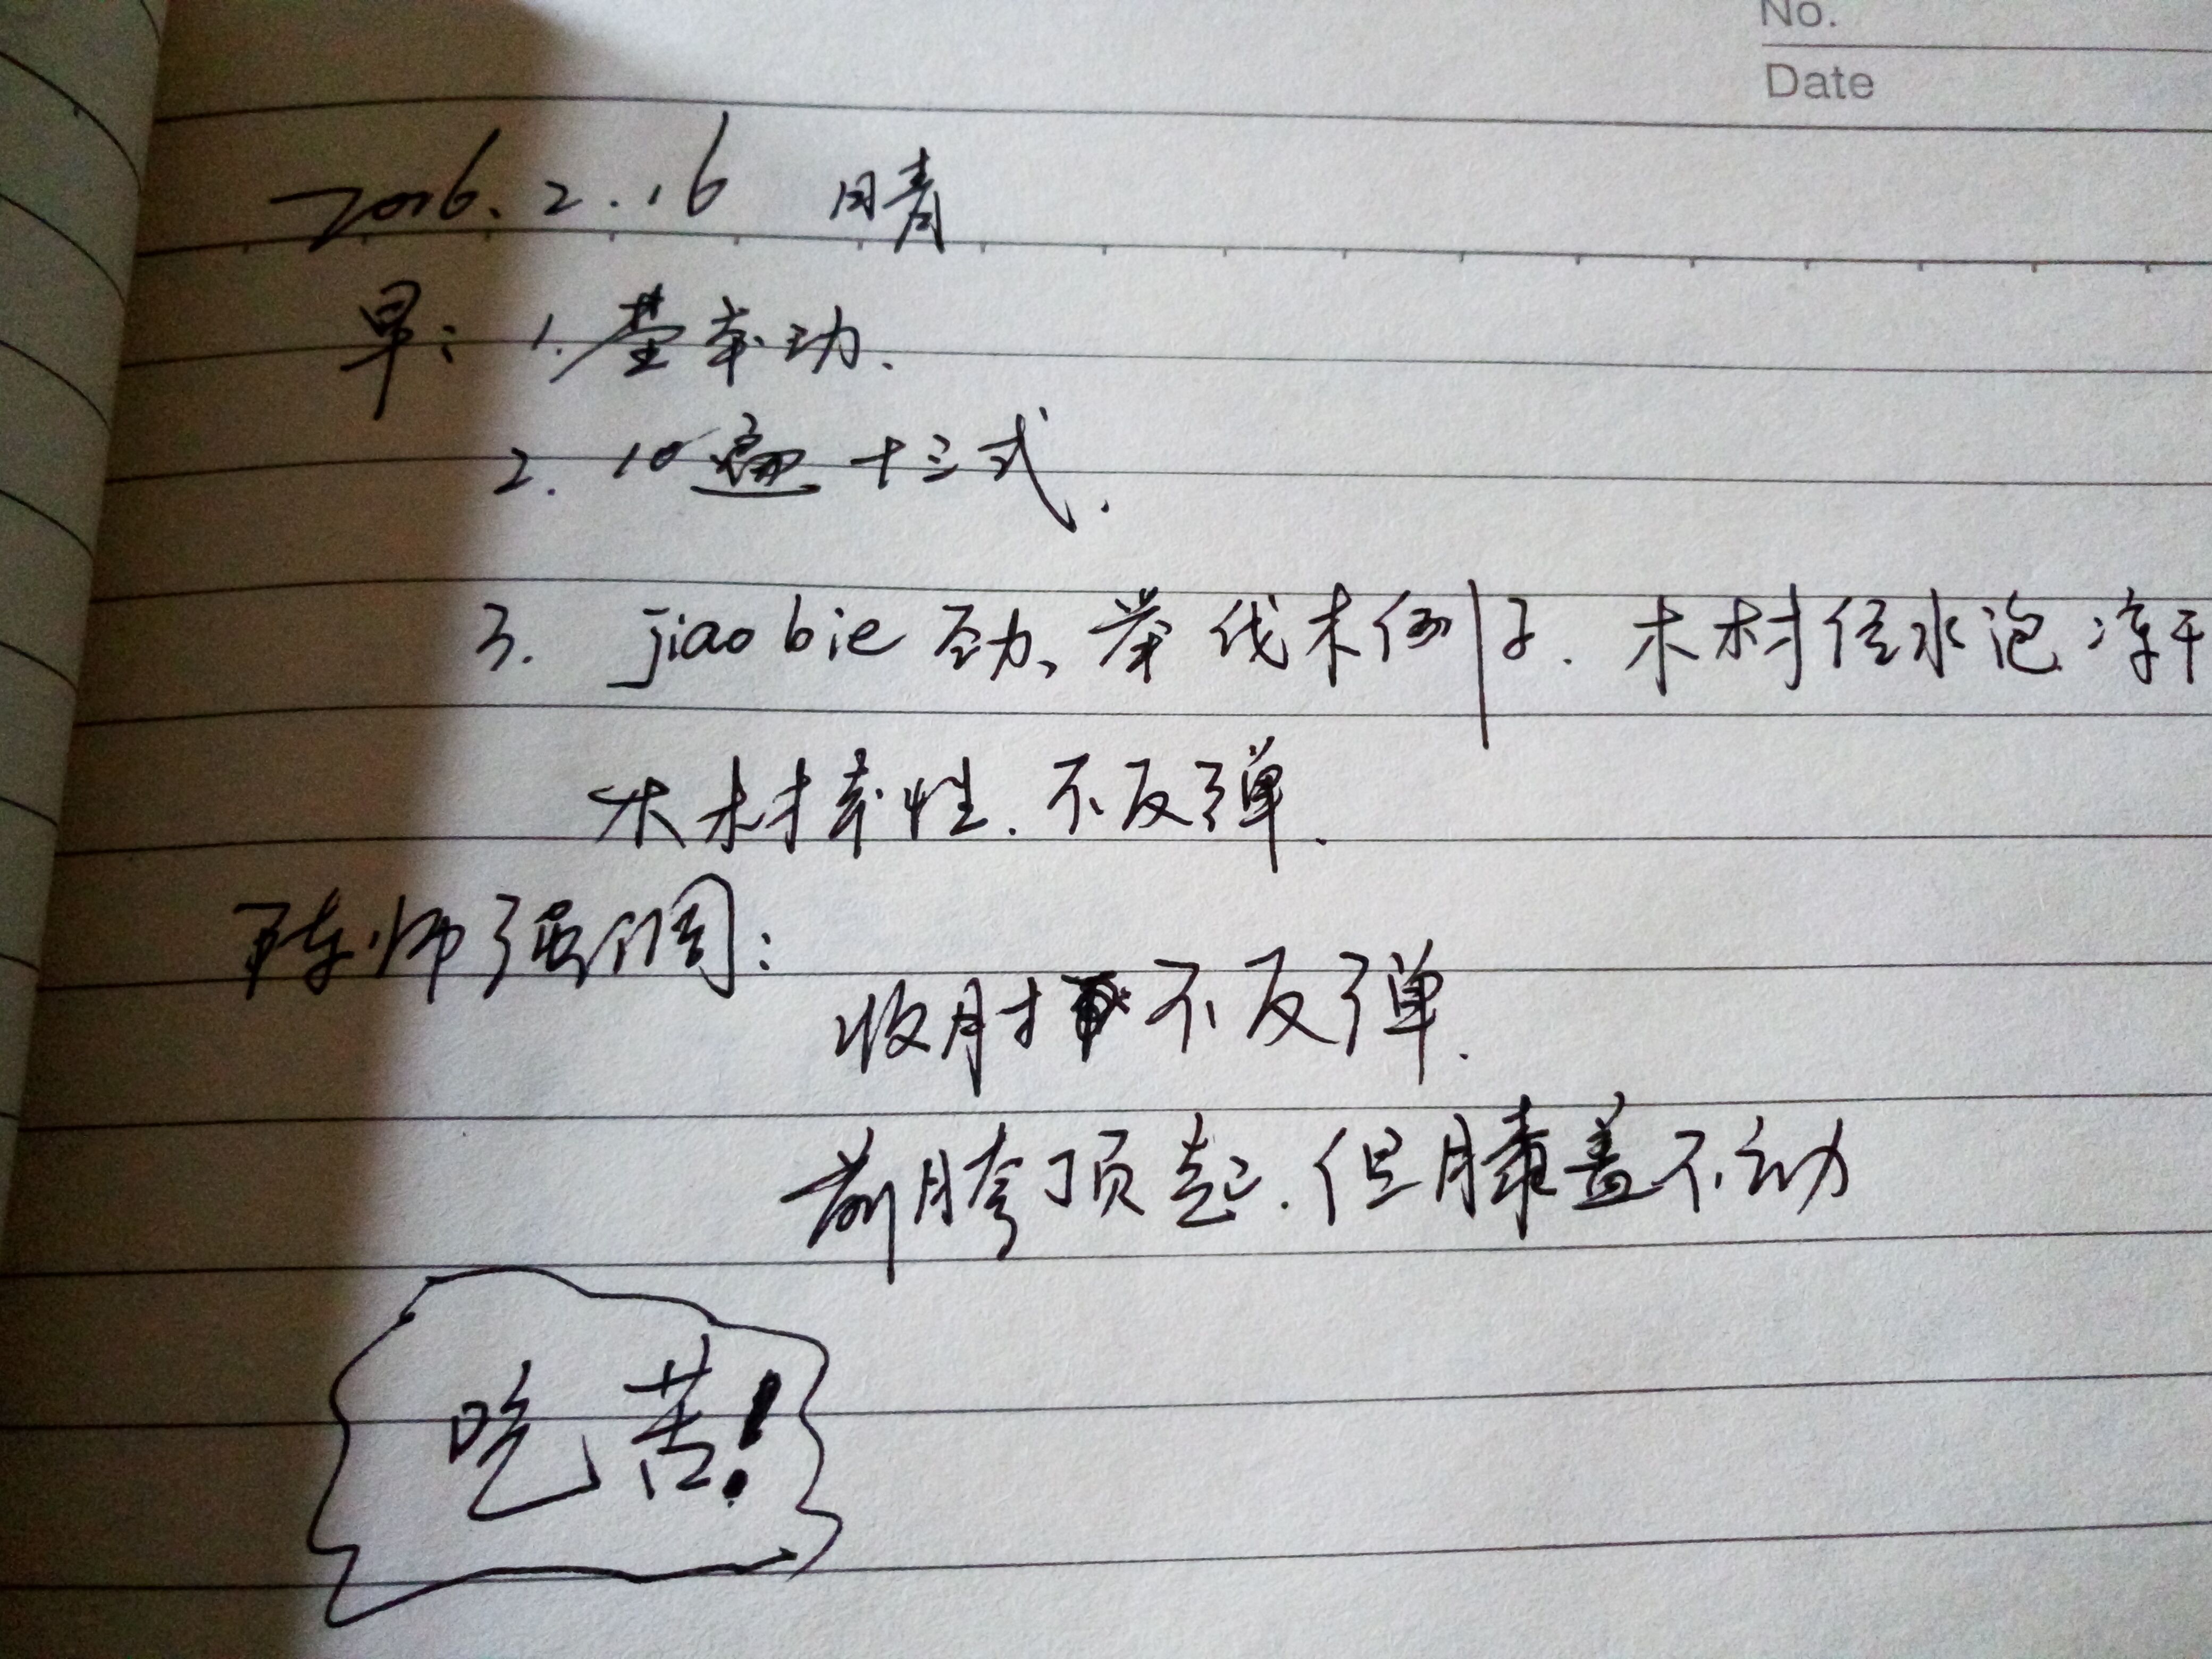 No.
Date
2016.2.16 晴
早: 1. 基本功.
2. 10遍十三式.
3. jiao bie 劲、举伐木例子. 木材经水泡冻干
木材本性. 不反弹.
陈师强调:
收肘 不反弹.
前胯顶起. 但膝盖不动
吃苦!